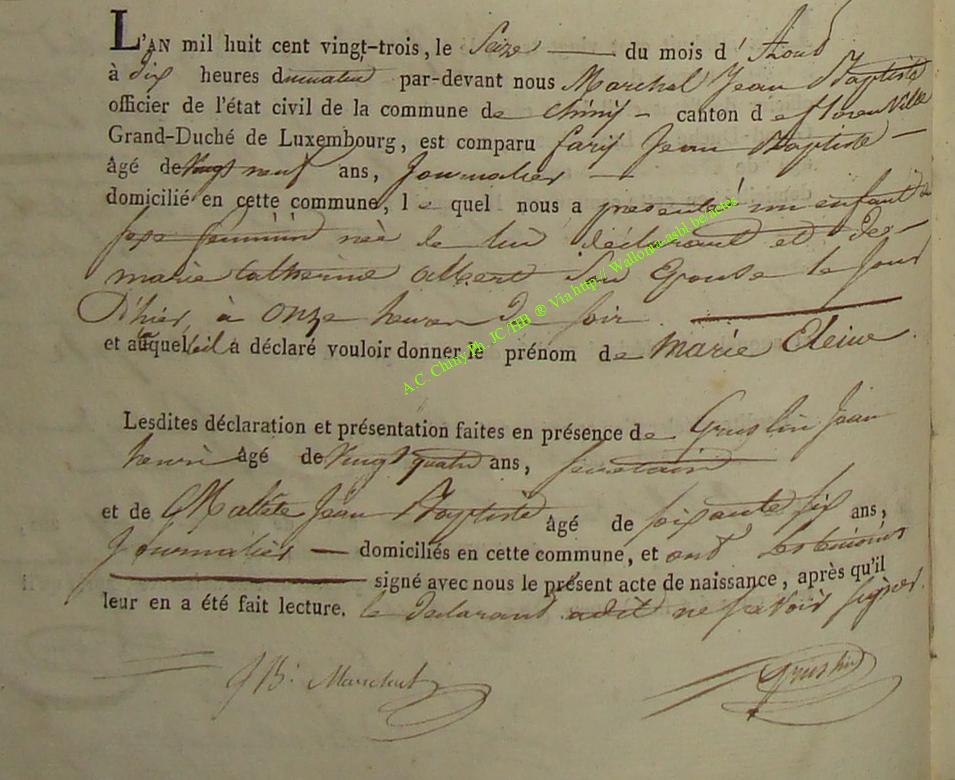 L'AN mil huit cent vingt-trois, le Seize du mois d'Aoud
à dix heures dumatin par-devant nous Marchal Jean Baptiste
officier de l'état civil de la commune de Chiny - canton de florenVille
Grand-Duché de Luxembourg, est comparu Jean Baptiste -
âgé de Vingt neuf ans, Journalier -
domicilié en cette commune, le quel nous a presenté un enfant du
sexe féminin née de lui déclarant et de
marie Catherine Albert Son Epouse le jour
D'hier à onze heures De soir
et auquel il a déclaré vouloir donner le prénom de Marie
Lesdites déclaration et présentation faites en présence de Gruslin Jean
henri âgé de Vingt quatre ans,
et de Jean Baptiste âgé de soixante six ans,
Journalier - domiciliés en cette commune, et ont les temoins
signé avec nous le présent acte de naissance, après qu'il
leur en a été fait lecture. le declarant adit ne savoir signer.
JB. Marchal
Gruslin
A.C. Chiny Ph. JC/HB ® Via http// Wallonia-asbl.be/actes